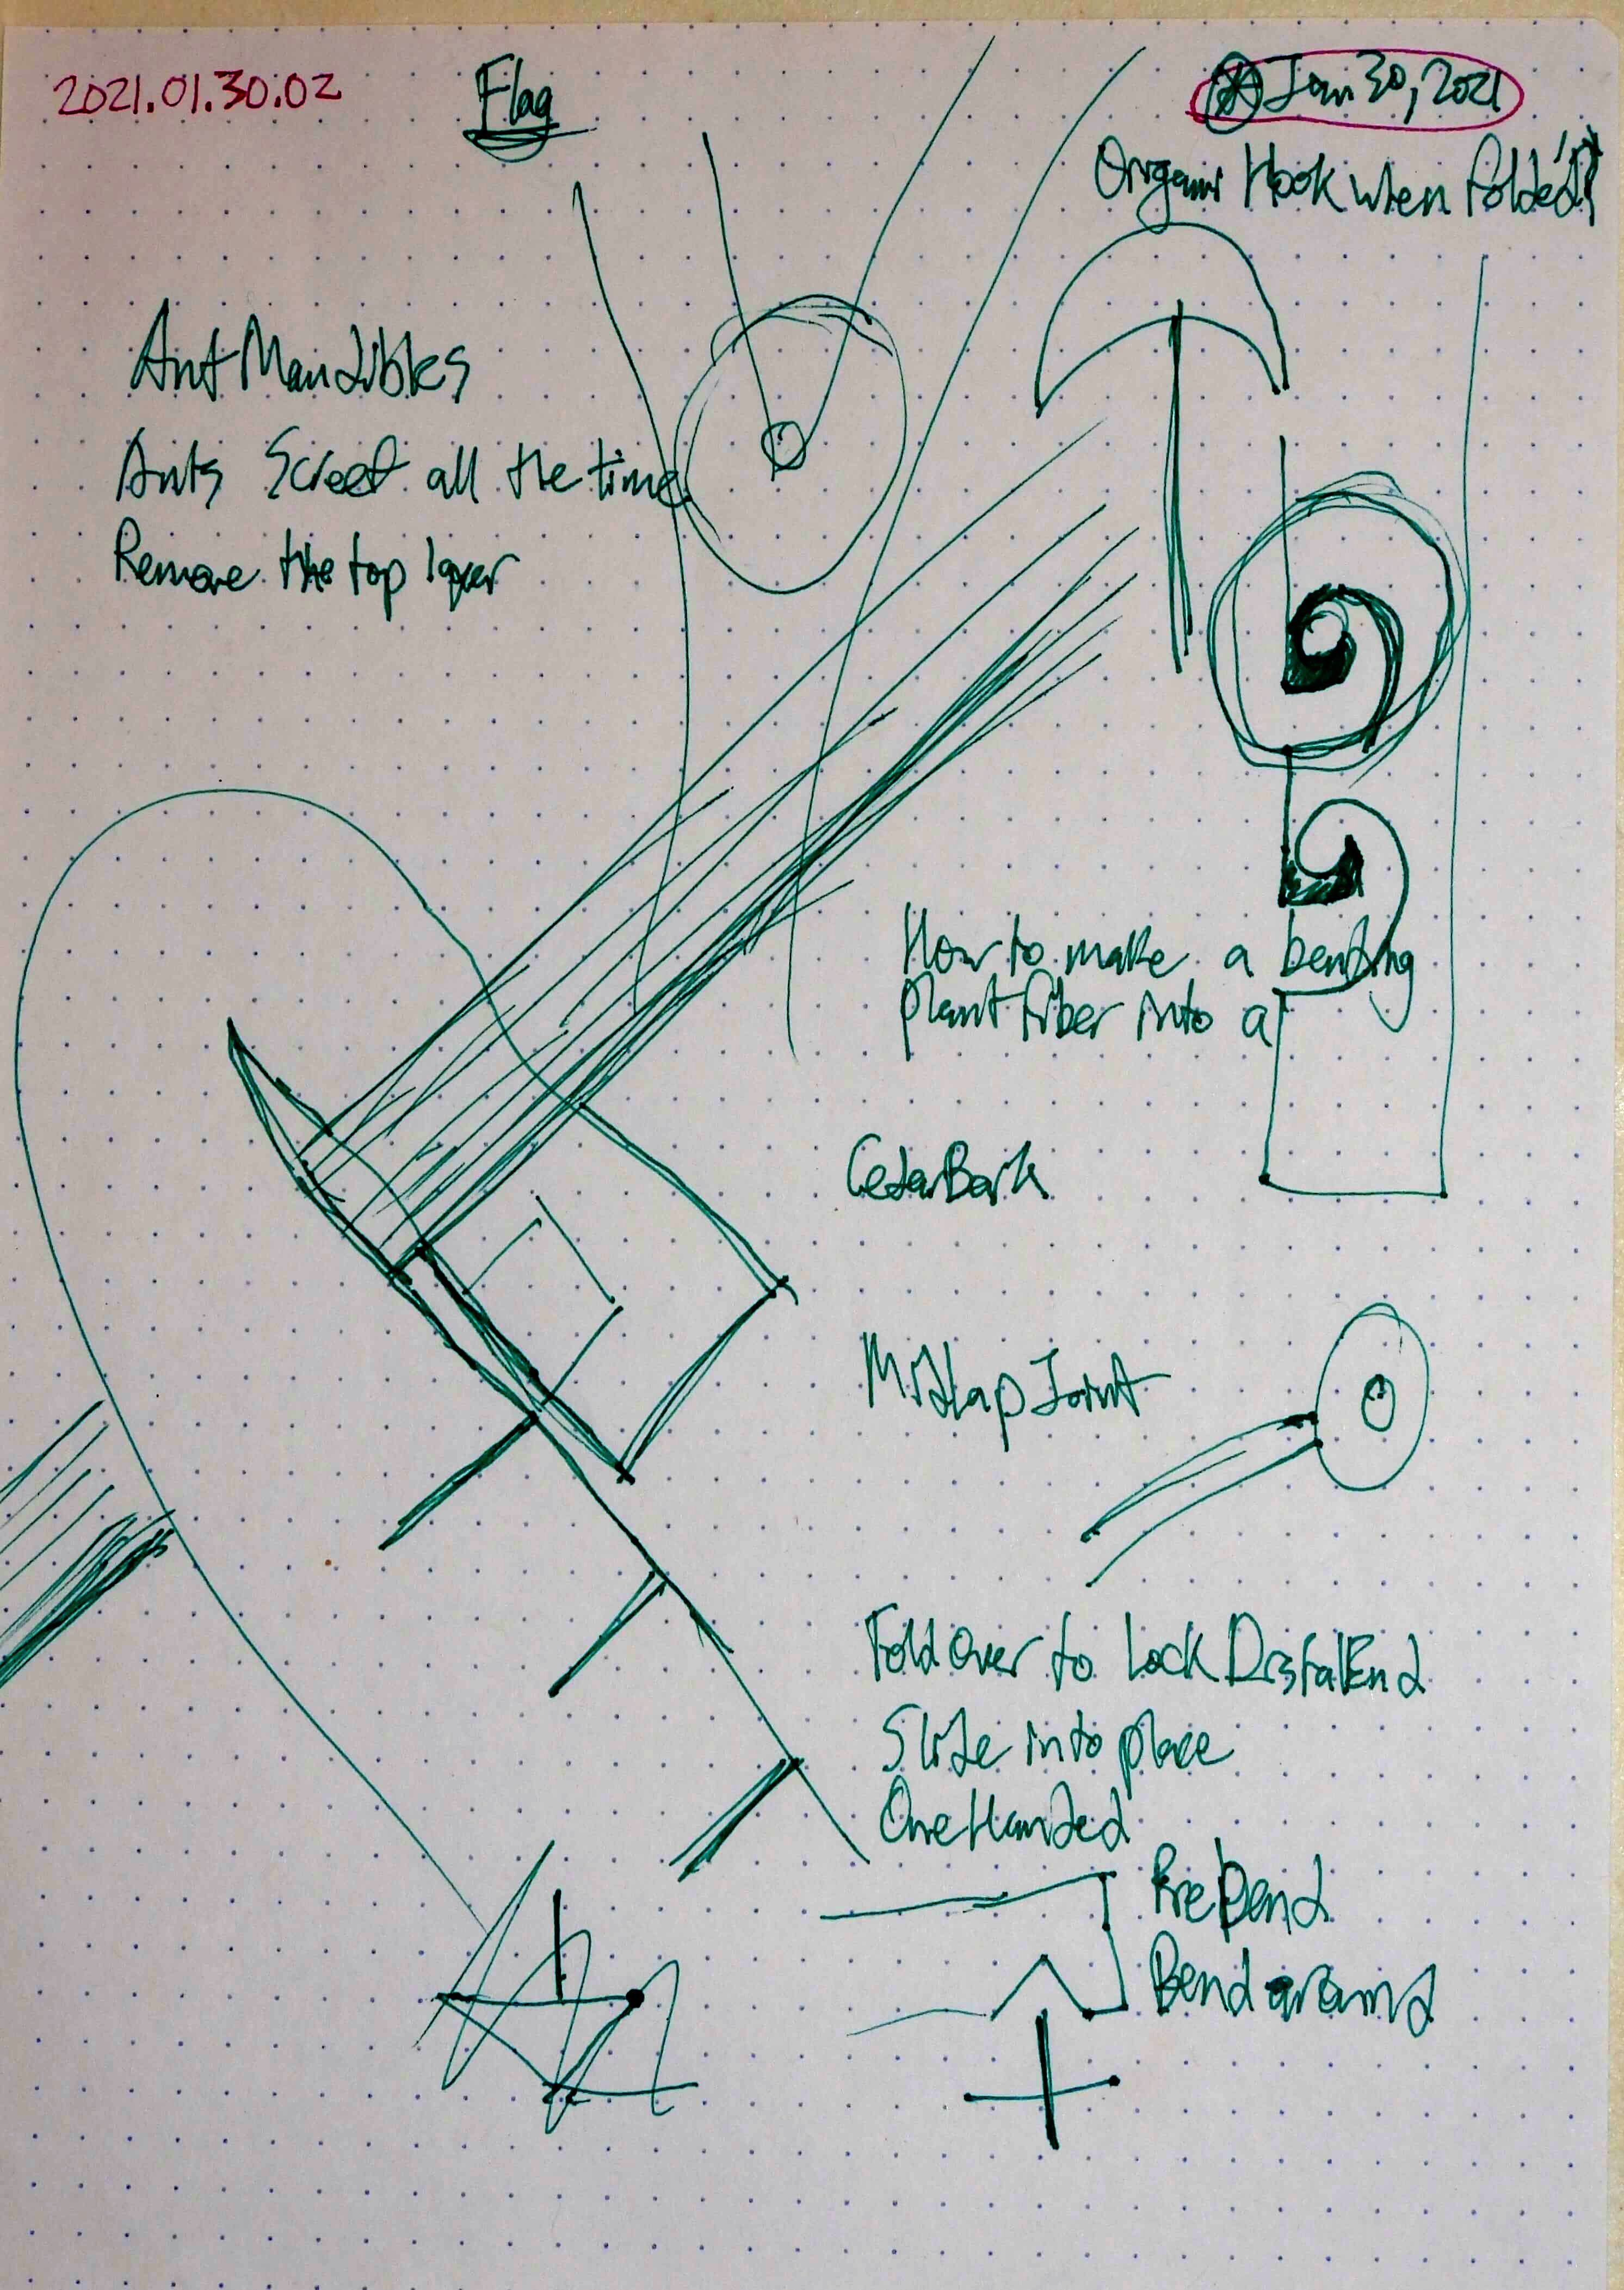 2021.01.30.02
Flag
Jan 30, 2021
Origami Hook when folded
Ant Mandibles
Ants Screef all the time
Remove the top layer
How to make a bending
plant fiber into a
Cedar Bark
Midlap Joint
Fold Over to Lock Distal End
Slide into place
One Handed
PreBend
Bend around